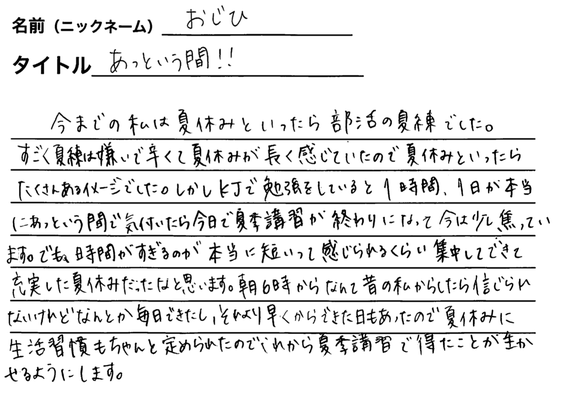 名前（ニックネーム） おじひ
タイトル あっという間!!
今までの私は夏休みといったら部活の夏練でした。
すごく夏練は嫌いで辛くて夏休みが長く感じていたので夏休みといったら
たくさんあるイメージでした。しかしKJで勉強をしていると1時間、1日が本当
にあっという間で気付いたら今日で夏季講習が終わりになって今は少し焦ってい
ます。でも、時間がすぎるのが本当に短いって感じられるくらい集中してできて
充実した夏休みだったなと思います。朝6時からなんて昔の私からしたら信じられ
ないけれどなんとか毎日できたし、それより早くからできた日もあったので夏休みに
生活習慣もちゃんと定められたのでこれから夏季講習で得たことが生か
せるようにします。